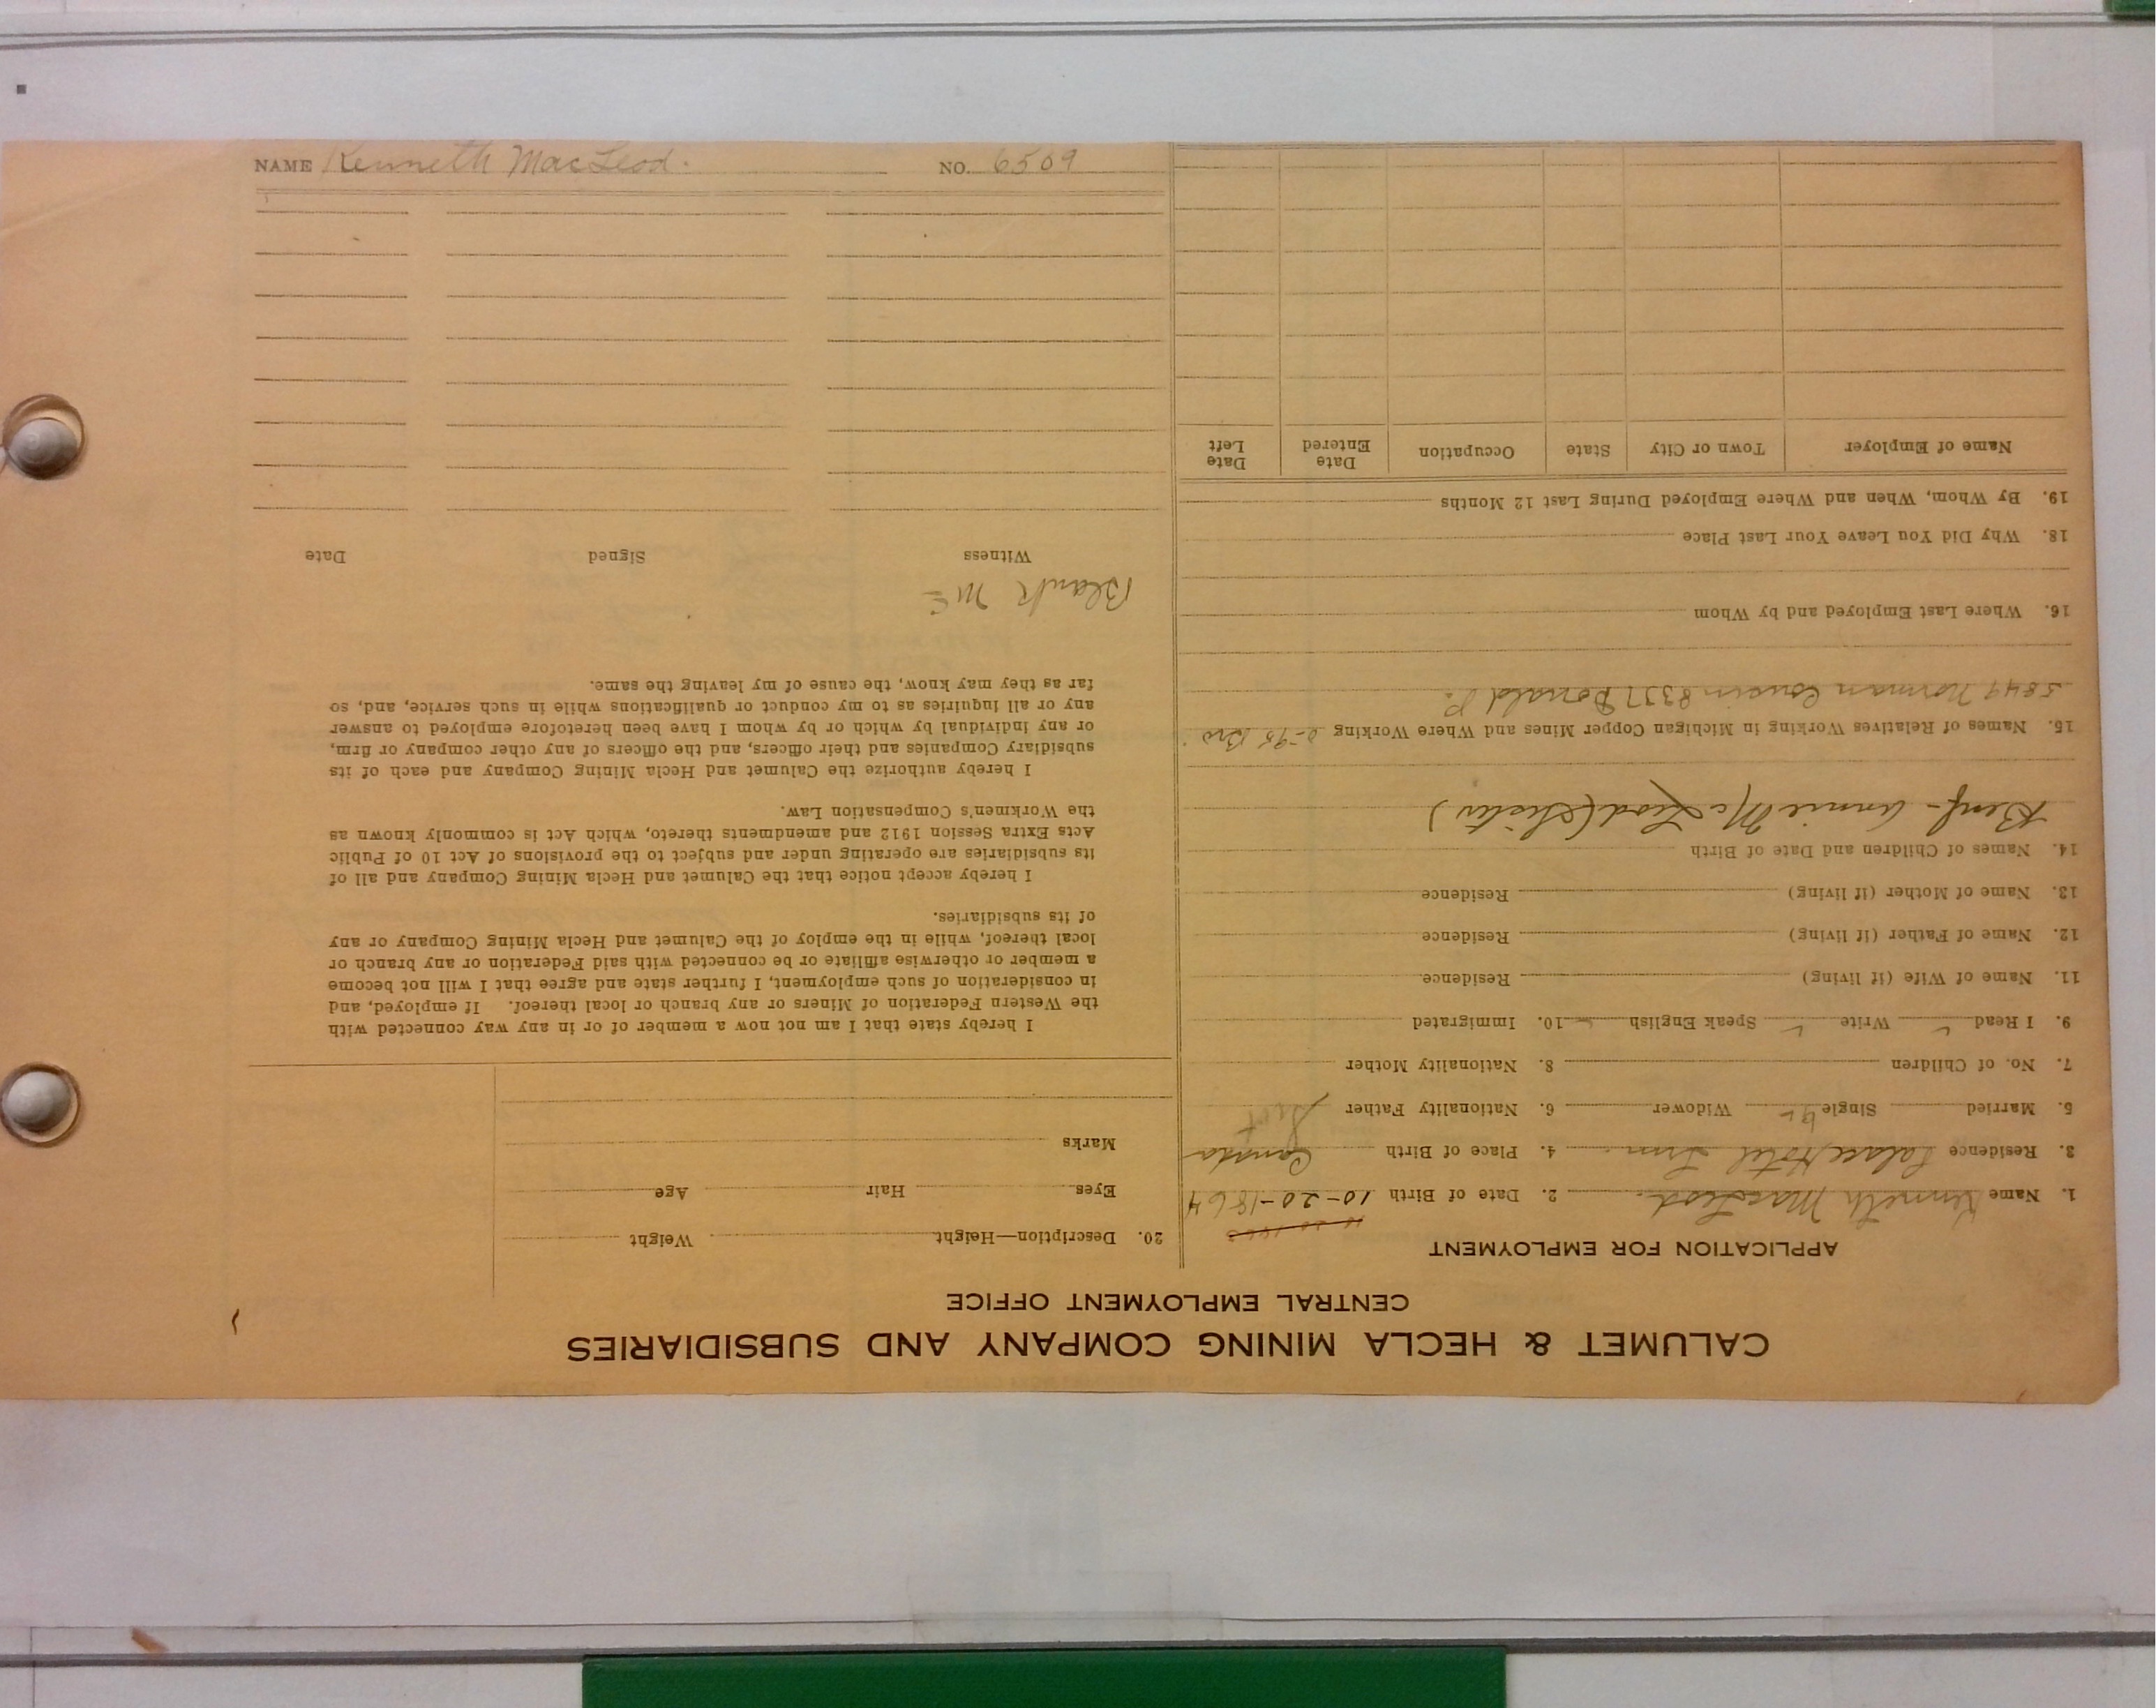 CALUMET & HECLA MINING COMPANY AND SUBSIDIARIES
CENTRAL EMPLOYMENT OFFICE
APPLICATION FOR EMPLOYMENT
1. Name Kenneth MacLeod. 2. Date of Birth 10-20-1864
3. Residence Palace Hotel Linn 4. Place of Birth Canada
5. Married Single Widower 6. Nationality Father Scot
7. No. of Children 8. Nationality Mother
9. I Read ✓ Write ✓ Speak English ✓ 10. Immigrated
11. Name of Wife (if living) Residence
12. Name of Father (if living) Residence
13. Name of Mother (if living) Residence
14. Names of Children and Date of Birth
Benf- Annie McLeod (Sister)
15. Names of Relatives Working in Michigan Copper Mines and Where Working Bro
Norman Cousin 8337 Donald P.
16. Where Last Employed and by Whom
18. Why Did You Leave Your Last Place
19. By Whom, When and Where Employed During Last 12 Months
Name of Employer Town or City State Occupation Date Entered Date Left
20. Description—Height Weight
Eyes Hair Age
Marks
I hereby state that I am not now a member of or in any way connected with
the Western Federation of Miners or any branch or local thereof. If employed, and
in consideration of such employment, I further state and agree that I will not become
a member or otherwise affiliate or be connected with said Federation or any branch or
local thereof, while in the employ of the Calumet and Hecla Mining Company or any
of its subsidiaries.
I hereby accept notice that the Calumet and Hecla Mining Company and all of
its subsidiaries are operating under and subject to the provisions of Act 10 of Public
Acts Extra Session 1912 and amendments thereto, which Act is commonly known as
the Workmen's Compensation Law.
I hereby authorize the Calumet and Hecla Mining Company and each of its
subsidiary Companies and their officers, and the officers of any other company or firm,
or any individual by which or by whom I have been heretofore employed to answer
any or all inquiries as to my conduct or qualifications while in such service, and, so
far as they may know, the cause of my leaving the same.
Blank
Witness Signed Date
NAME Kenneth MacLeod. NO. 6509